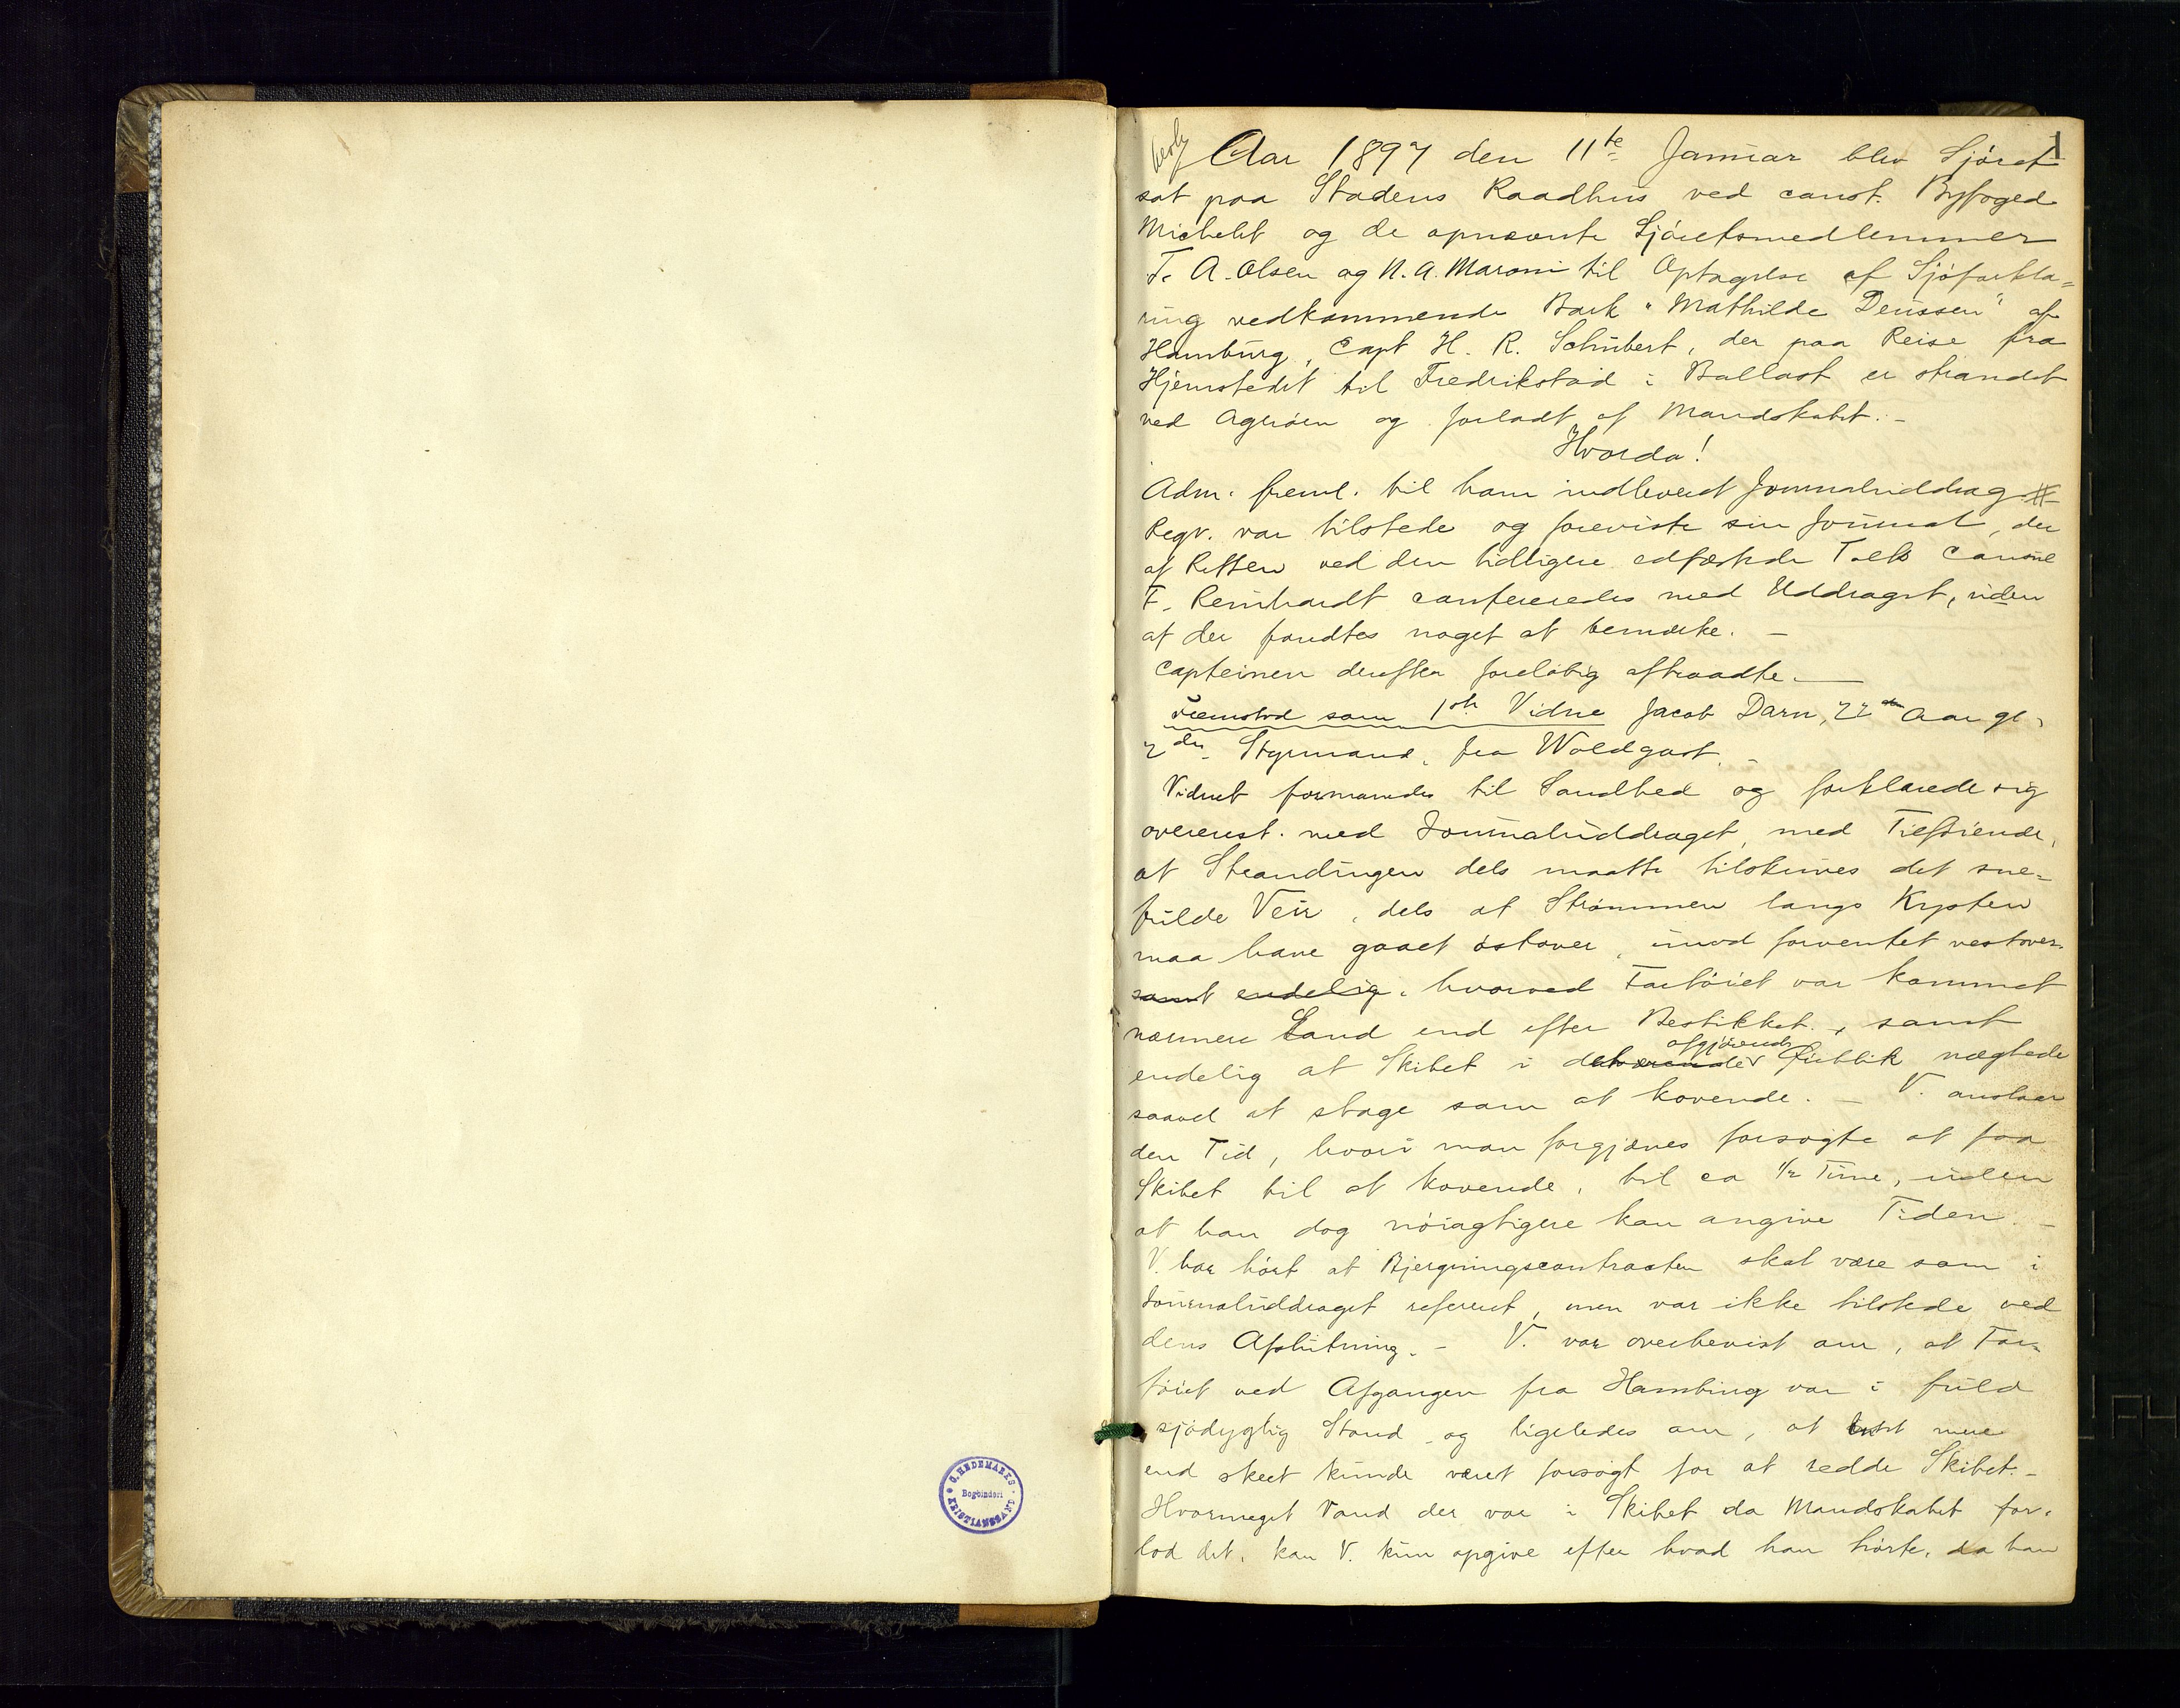 1
Aar 1897 den 11te Januar blev Sjöret
sat paa Stadens Raadhus ved const. Byfoged
Michelet og de opnævnte Sjöretsmedlemmer
T. A. Olsen og N. A. Maroni til Optagelse af Sjöforkla=
ring vedkommende Bark "Mathilde Denssen" af
Hamburg, Capt H. R. Schubert, der paa Reise fra
Hjemstedet til Fredrikstad i Ballast er strandet
ved Ageröen og forladt af Mandskabet. -
Hvorda!
Adm. freml. til ham indleveret Journaluddrag #
Reqv. var tilstede og foreviste sin Journal, der
af Retten ved den tidligere edfæstede Tolk
F. Reinhardt confereredes med Uddraget, uden
at der fandtes noget at bemærke. -
Capteinen derefter foreløbig aftraadte. -
Fremstod som 1ste Vidne Jacob Darn, 22 Aar gl.,
2den Styrmand, fra Woldgast. -
Vidnet formanedes til Sandhed og forklarede sig
overenst. med Journaluddraget, med Tilföiende,
at Strandingen dels maatte tilskrives det sne=
fulde Veir, dels at Strömmen langs Kysten
maa have gaaet östover, imod forventet vestover,
samt endelig. hvorved Fartöiet var kommet
nærmere Land end efter Bestikket, samt
endelig at Skibet i det afgjörende Öieblik nægtede
saavel at stage som at kovende. - V. anslaar
den Tid, hvori man forgjæves forsøgte at faa
Skibet til at kovende, til ca 1/2 Time, uden
at han dog nöiagtigere kan angive Tiden. -
V. har hört at Bjergningscontracten skal være som i
Journaluddraget refereret, men var ikke tilstede ved
dens Afslutning. - V. var overbevist om, at Far=
töiet ved Afgangen fra Hamburg var i fuld
sjödygtig Stand og ligeledes om, at mere
end skeet kunde været forsøgt for at redde Skibet. -
Hvormeget Vand der var i Skibet da Mandskabet for=
lod det, kan V. kun opgive efter hvad han hörte, da han
G. HEDEMARKS
Bogbinderi
KRISTIANSSAND